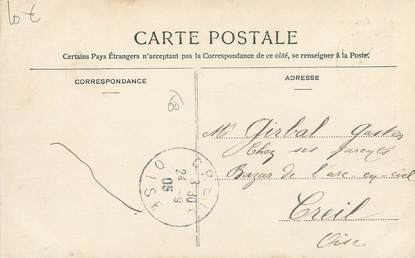 CARTE POSTALE
Certains Pays Étrangers n'acceptant pas la Correspondance de ce côté, se renseigner à la Poste.
CORRESPONDANCE
ADRESSE
60
Mr Girbal Gaston
Chez ses parents
Bazar de l'arc-en-ciel
Creil
Oise
CREIL
3 30
24 9
05
OISE